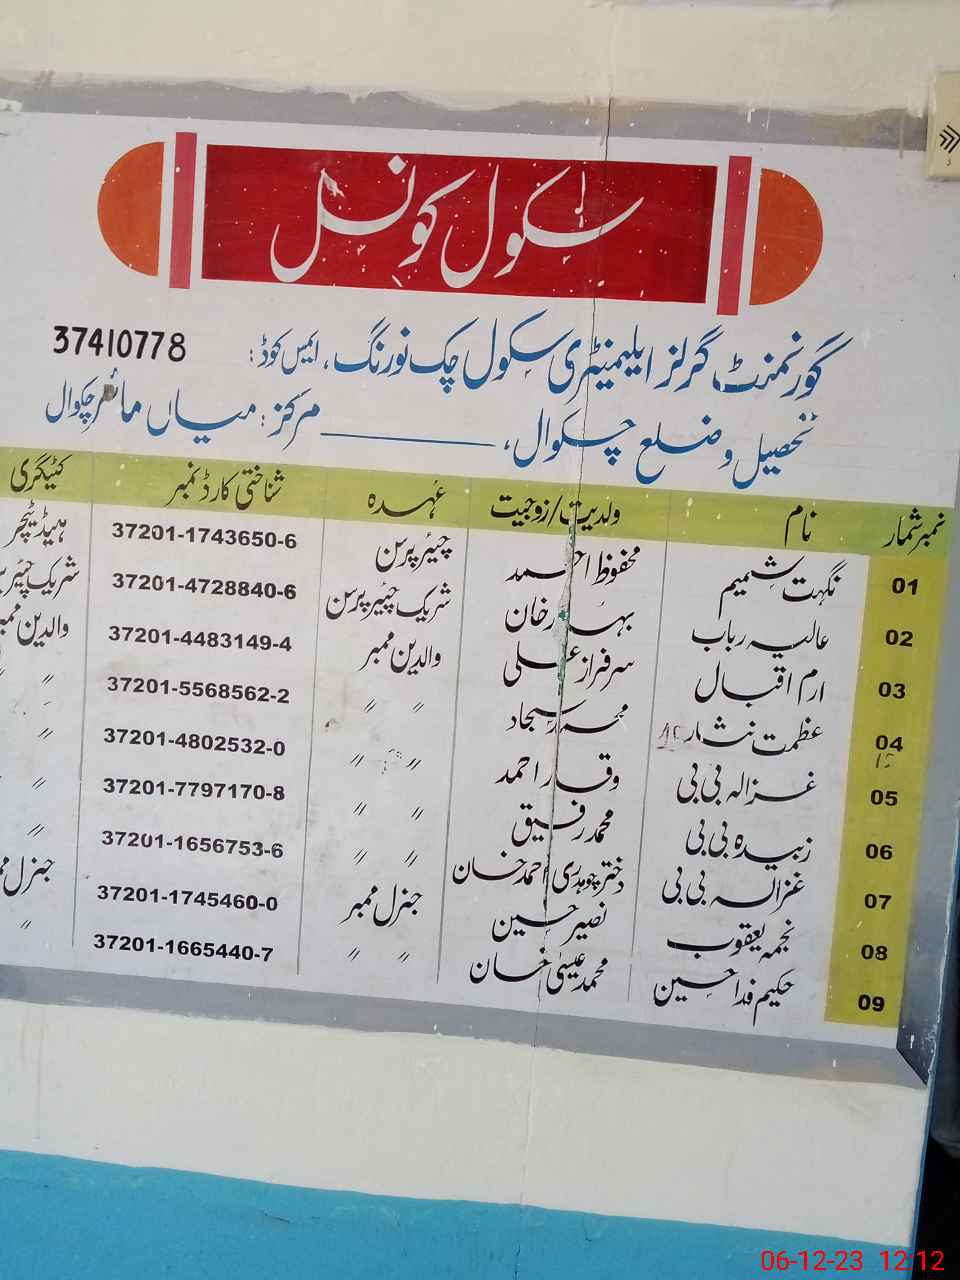 سکول کونسل
گورنمنٹ گرلز ایلیمنٹری سکول چک نورنگ، ایمس کوڈ: 37410778
تحصیل و ضلع چکوال، ________ مرکز: میاں مائر چکوال
نمبر شمار نام ولدیت/زوجیت عہدہ شناختی کارڈ نمبر کٹیگری
01 نگہت شمیم محفوظ احمد چیئرپرسن 37201-1743650-6 ہیڈ ٹیچر
02 عالیہ رباب بہادر خان شریک چیئرپرسن 37201-4728840-6 شریک
03 ارم اقبال سرفراز علی والدین ممبر 37201-4483149-4 والدین
04 عظمت نثار محمد سجاد 〃 〃 37201-5568562-2 〃
05 غزالہ بی بی وقار احمد 〃 〃 37201-4802532-0 〃
06 زبیدہ بی بی محمد رفیق 〃 〃 37201-7797170-8 〃
07 غزالہ بی بی دختر چوہدری احمد خان 〃 〃 37201-1656753-6 〃
08 نجمہ یعقوب نصیر حسین جنرل ممبر 37201-1745460-0 جنرل
09 حکیم فدا حسین محمد عیسیٰ خان 〃 〃 37201-1665440-7 〃
06-12-23 12:12